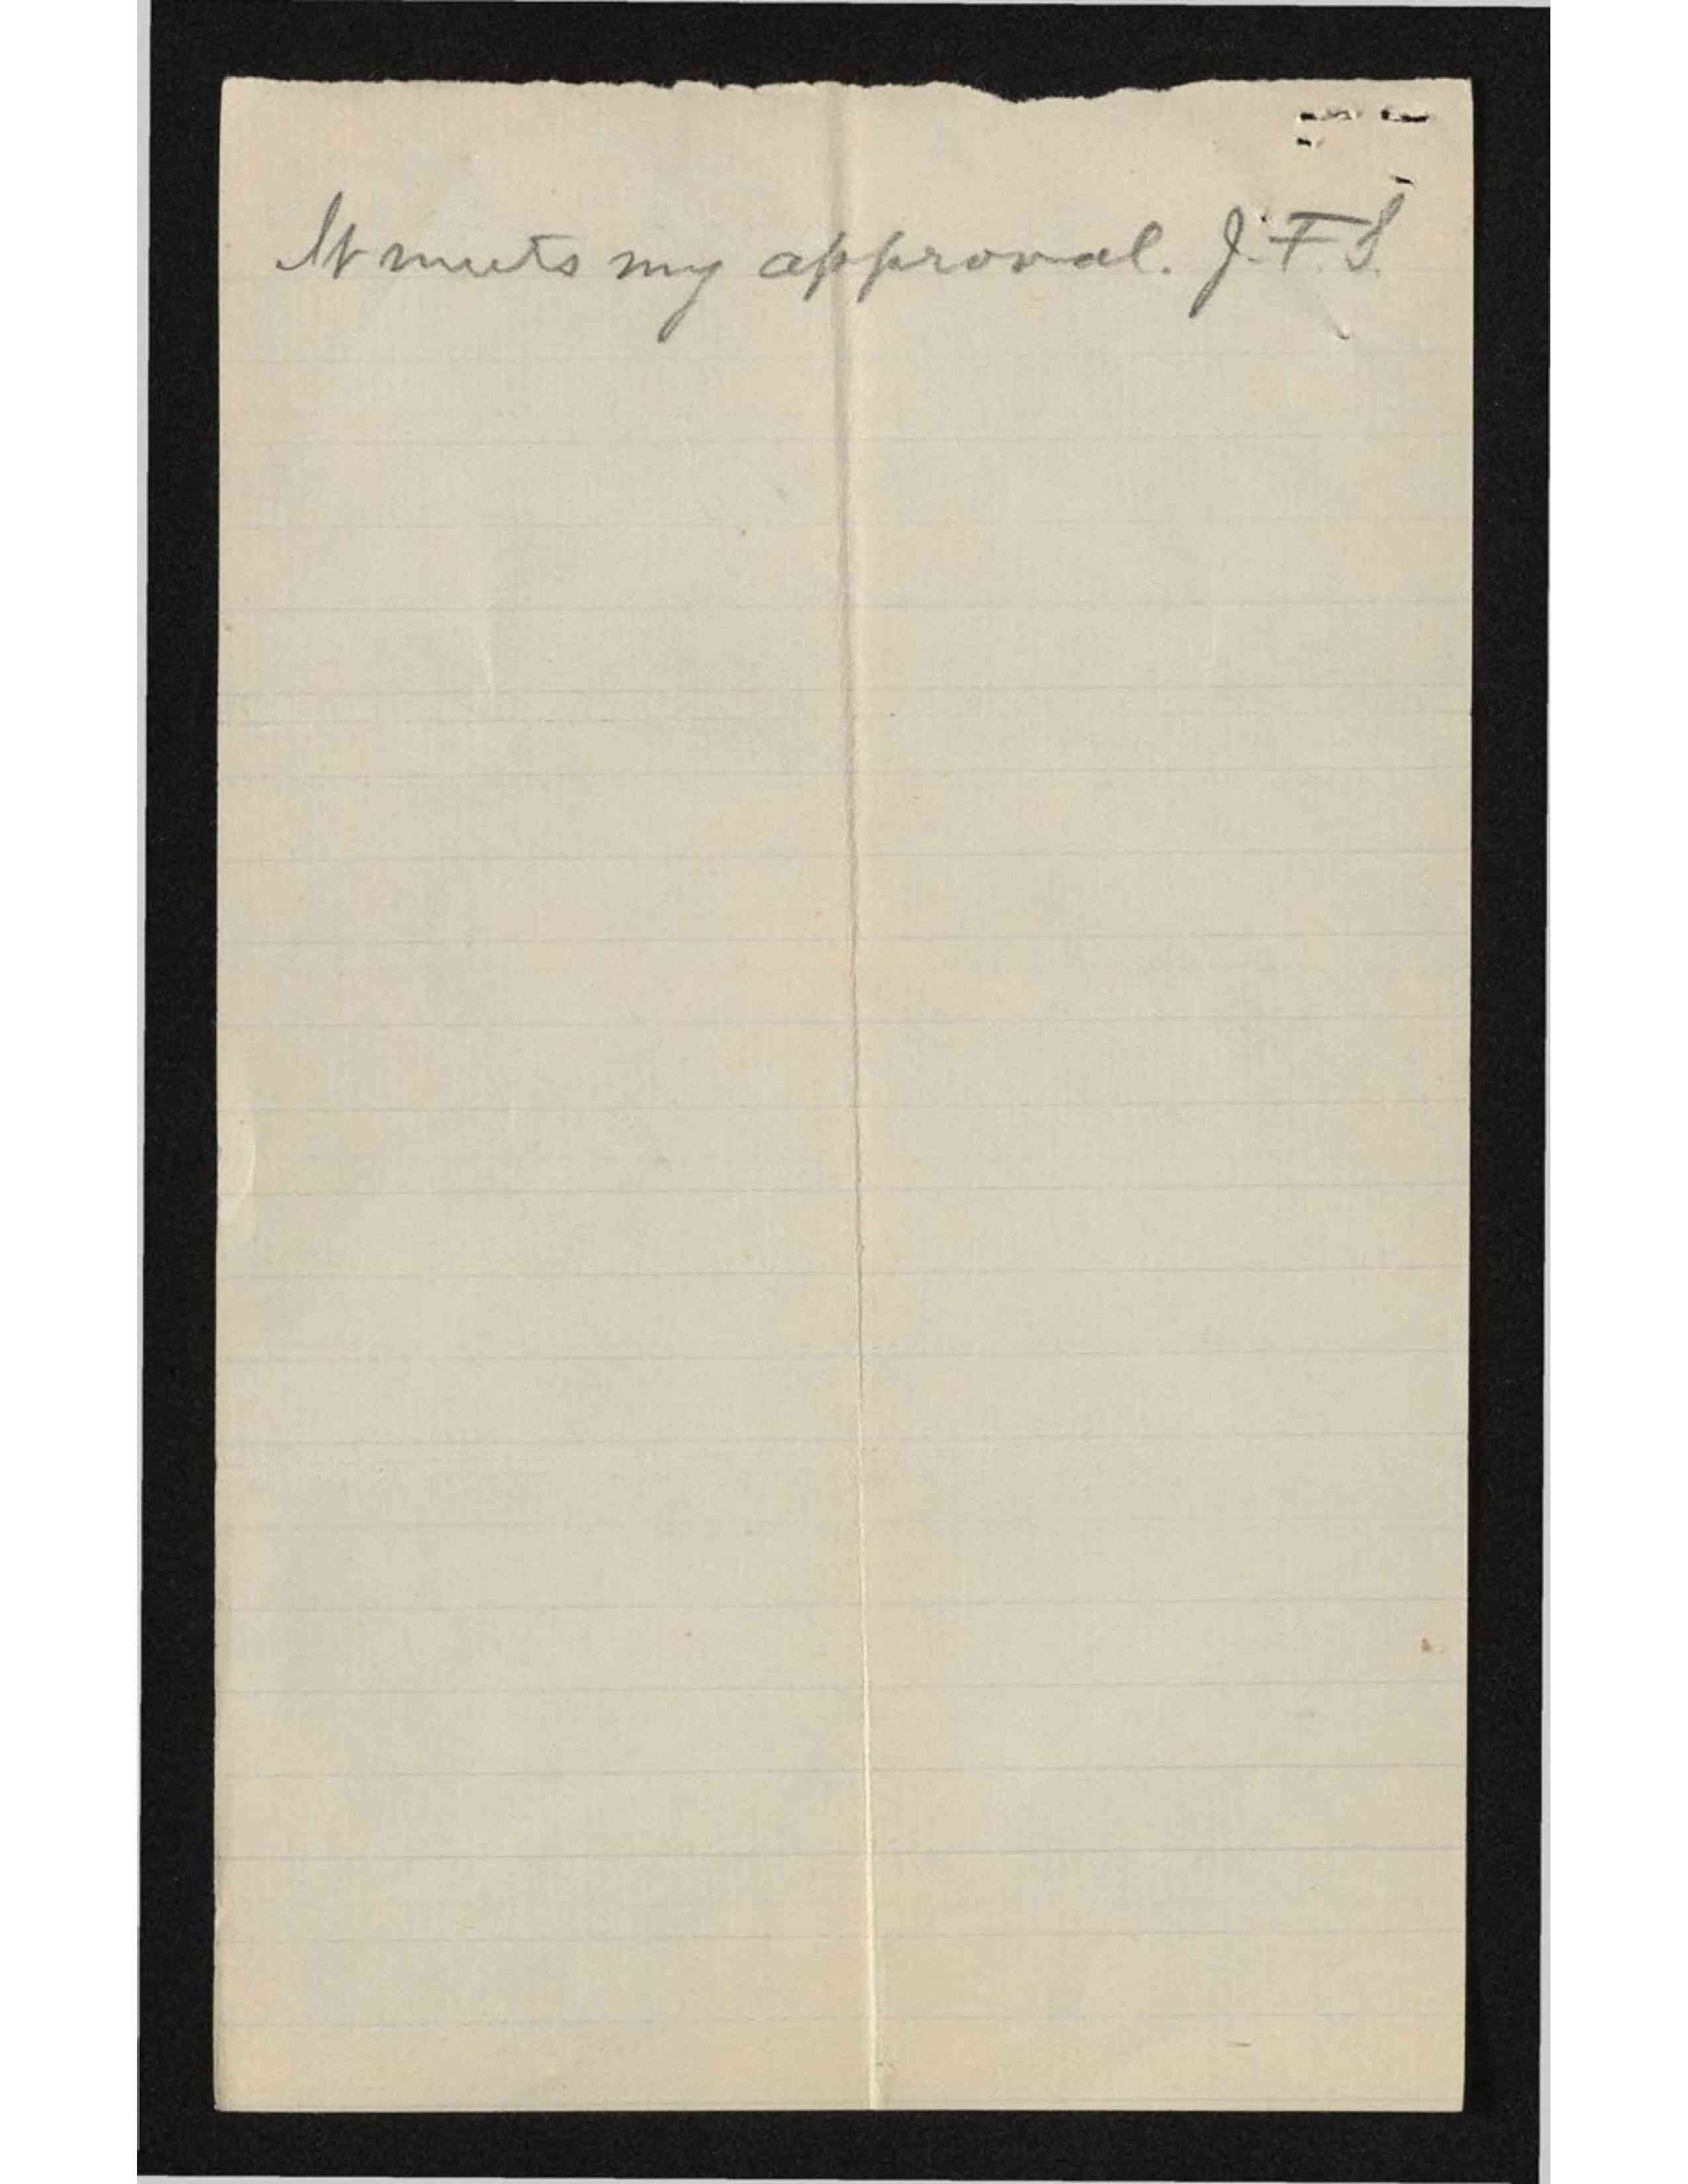 It meets my approval. J.F.S.